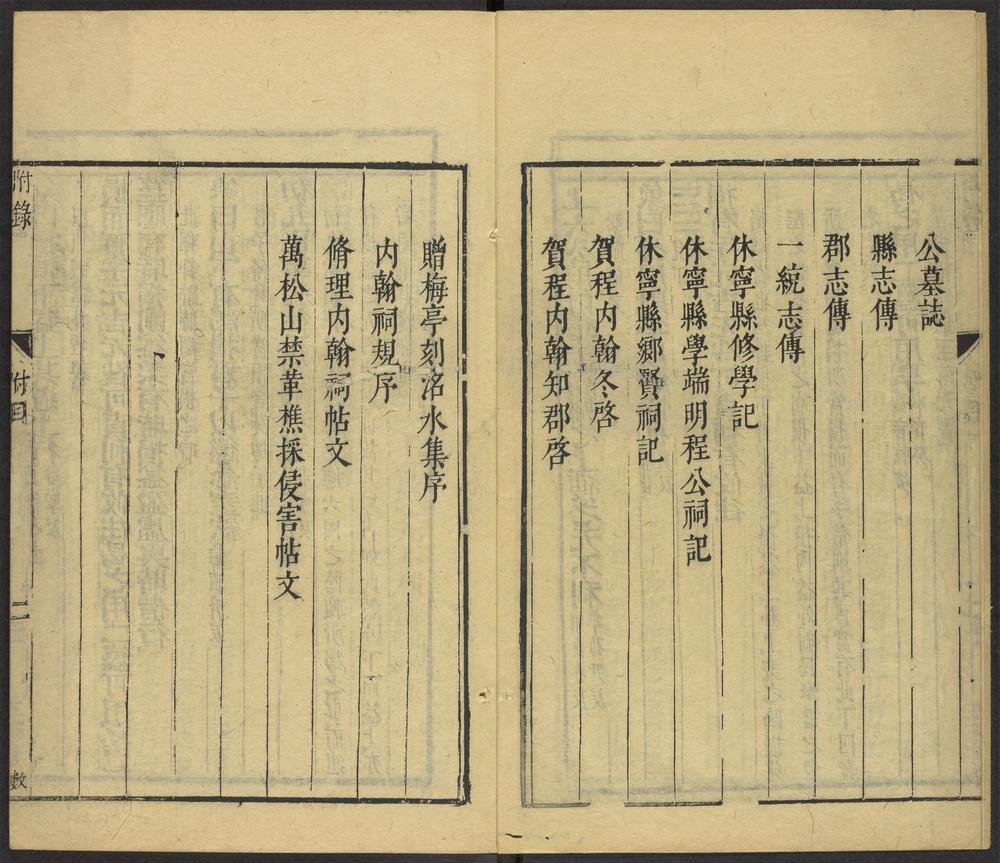 公墓誌
縣志傳
郡志傳
一統志傳
休寧縣修學記
休寧縣學端明程公祠記
休寧縣鄉賢祠記
賀程内翰冬啓
賀程内翰知郡啓
贈梅亭刻洺水集序
内翰祠規序
脩理内翰祠帖文
萬松山禁革樵採侵害帖文
附錄
附目
二
數